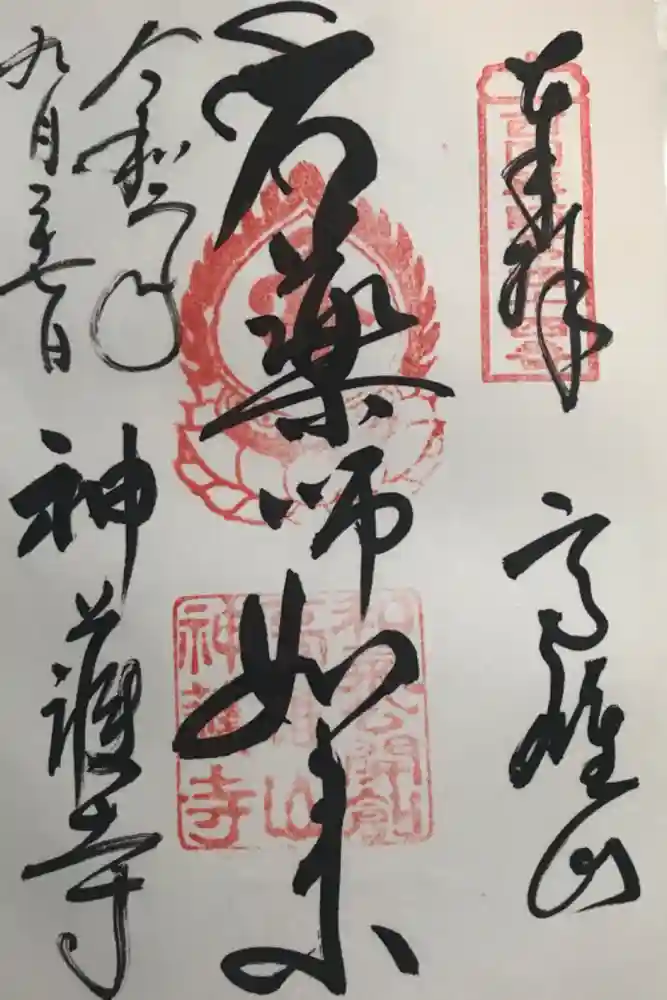 奉拝
高雄山
薬師如来
和気公開創
高雄山
神護寺
令和年
九月二十七日
神護寺